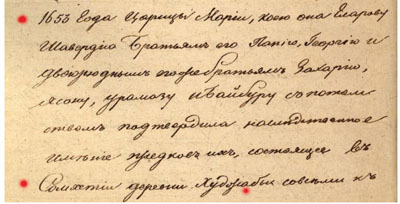 1653 Года Царицы Маріи, коею она Еларову
Шавердію Братьямъ его Папію, Георгію и
двоюроднымъ его же братьямъ Захарію,
Ясону, Урамазу и Байбуру съ потом
ствомъ подтвердила наслѣдственное
имѣніе предковъ ихъ, состоящее въ
Сомхетіи деревни Худжабы совсѣми къ